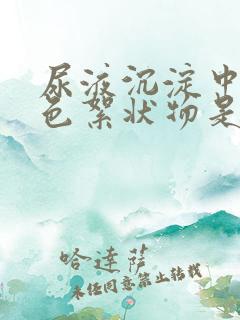 尿液沉淀中
色絮状物是
哈達薩
未经同意禁止转载